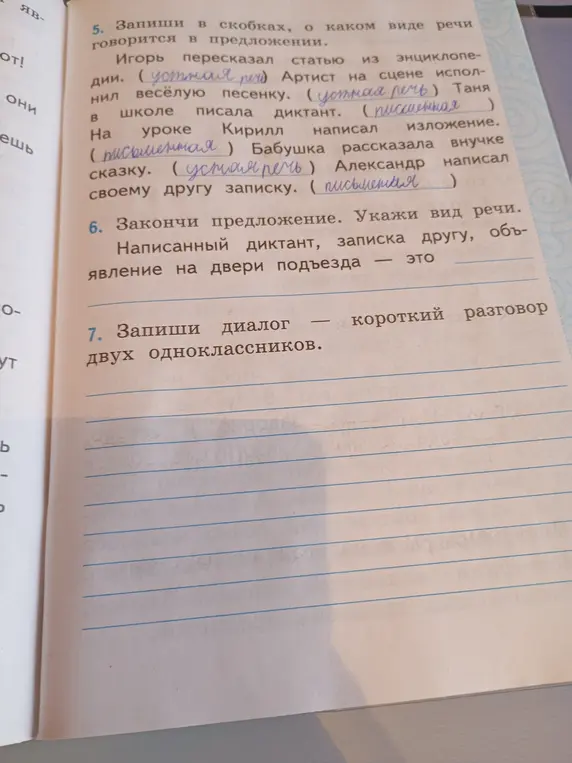 яв-
от!
они
ешь
о-
ут
ь
-
ь
5. Запиши в скобках, о каком виде речи
говорится в предложении.
Игорь пересказал статью из энциклопе-
дии. (устная речь) Артист на сцене испол-
нил весёлую песенку. (устная речь) Таня
в школе писала диктант. (письменная)
На уроке Кирилл написал изложение.
(письменная) Бабушка рассказала внучке
сказку. (устная речь) Александр написал
своему другу записку. (письменная)
6. Закончи предложение. Укажи вид речи.
Написанный диктант, записка другу, объ-
явление на двери подъезда — это
7. Запиши диалог — короткий разговор
двух одноклассников.